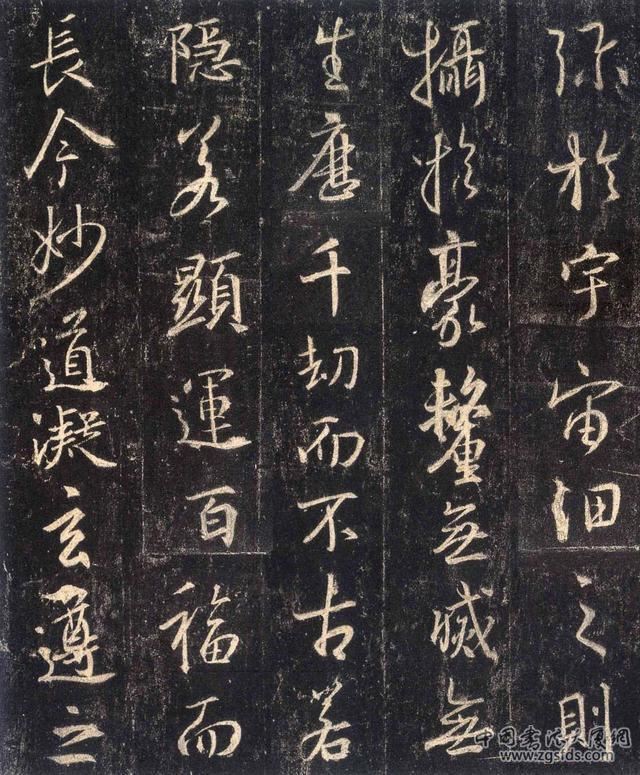 弥於宇宙細之則
攝於豪釐無滅無
生歷千劫而不古若
隱若顯運百福而
長今妙道凝玄遵之
中国书法大厦网
www.zgsfds.com